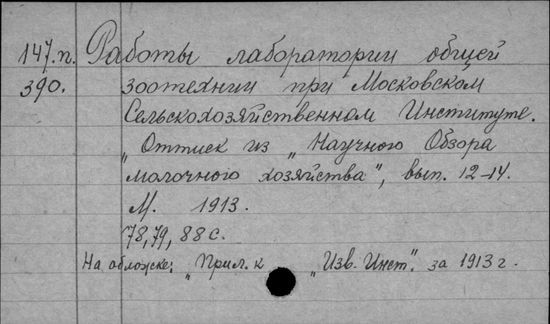 147.п. Работы лаборатории общей
390. зоотехнии при Московском
Сельскохозяйственном Институте.
„Оттиск из „Научного Обзора
молочного хозяйства", вып. 12-14.
М. 1913.
78, 79, 88 с.
На обложке: „Прил. к „Изв. Инст". за 1913 г.